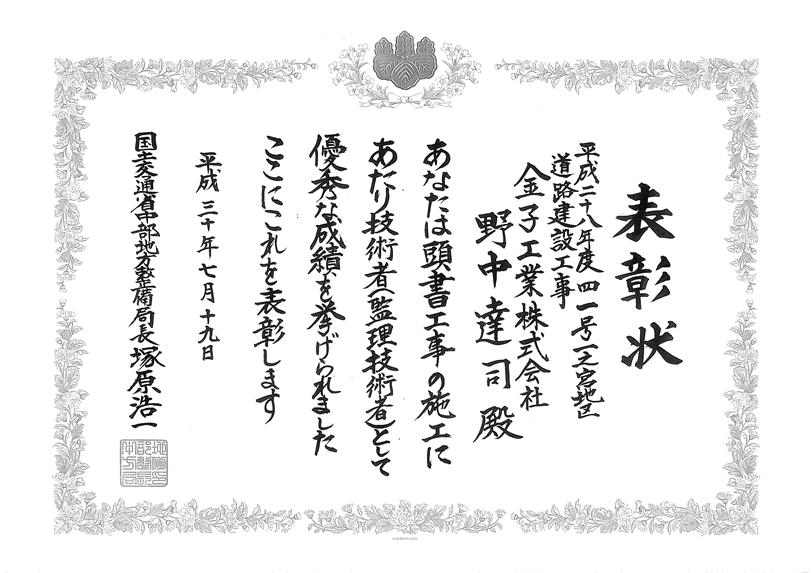 表彰状
平成二十八年度四一号一之宮地区
道路建設工事
金子工業株式会社
野中達司殿
あなたは頭書工事の施工に
あたり技術者(監理技術者)として
優秀な成績を挙げられました
ここにこれを表彰します
平成三十年七月十九日
国土交通省中部地方整備局長塚原浩一